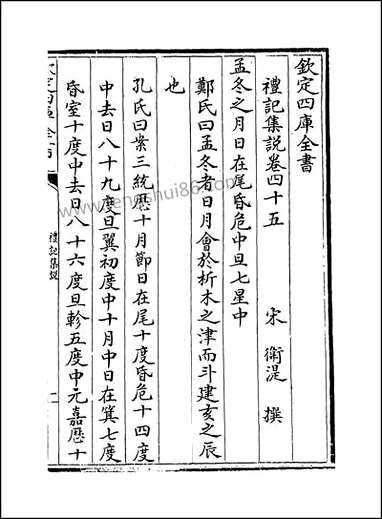 欽定四庫全書
禮記集說卷四十五
宋 衛湜 撰
孟冬之月日在尾昏危中旦七星中
鄭氏曰孟冬者日月會於析木之津而斗建亥之辰
也
孔氏曰案三統厯十月節日在尾十度昏危十四度
中去日八十九度旦翼初度中十月中日在箕七度
昏室十度中去日八十六度旦軫五度中元嘉厯十
禮記集說